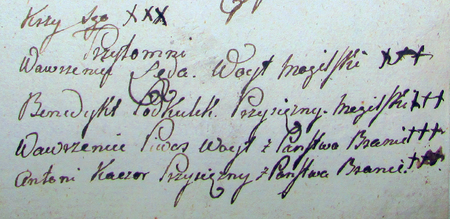 Krzy Szo XXX
Przytomni
Wawrzeniec Seda. Woyt Mogilski XXX
Benedykt Podkulek. Przysięzny. Mogilski +++
Wawrzeniec Piwos Woyt z Państwa Branic. +++
Antoni Kaczor Przysięzny z Państwa Branic. +++